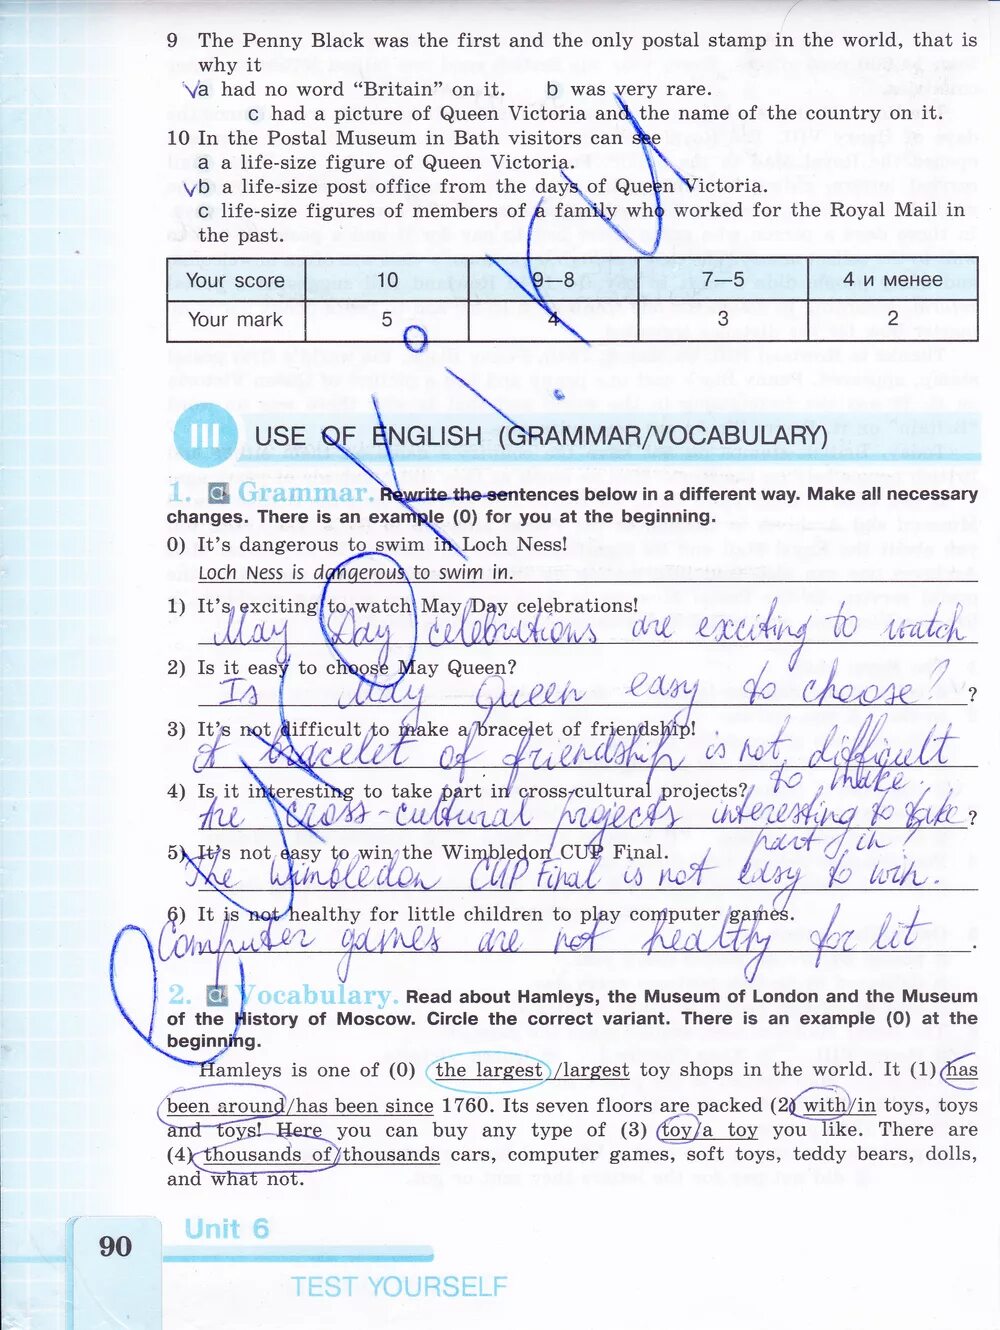 9 The Penny Black was the first and the only postal stamp in the world, that is
why it
a had no word “Britain” on it. b was very rare.
c had a picture of Queen Victoria and the name of the country on it.
10 In the Postal Museum in Bath visitors can see
a a life-size figure of Queen Victoria.
b a life-size post office from the days of Queen Victoria.
c life-size figures of members of a family who worked for the Royal Mail in
the past.
Your score 10 9–8 7–5 4 и менее
Your mark 5 4 3 2
III USE OF ENGLISH (GRAMMAR/VOCABULARY)
1. a Grammar. Rewrite the sentences below in a different way. Make all necessary
changes. There is an example (0) for you at the beginning.
0) It’s dangerous to swim in Loch Ness!
Loch Ness is dangerous to swim in.
1) It’s exciting to watch May Day celebrations!
May Day celebrations are exciting to watch
2) Is it easy to choose May Queen?
Is May Queen easy to choose? ?
3) It’s not difficult to make a bracelet of friendship!
A bracelet of friendship is not difficult
to make.
4) Is it interesting to take part in cross-cultural projects?
Are cross-cultural projects interesting to take ?
part in?
5) It’s not easy to win the Wimbledon CUP Final.
The Wimbledon CUP Final is not easy to win.
6) It is not healthy for little children to play computer games.
Computer games are not healthy for lit .
2. a Vocabulary. Read about Hamleys, the Museum of London and the Museum
of the History of Moscow. Circle the correct variant. There is an example (0) at the
beginning.
Hamleys is one of (0) the largest/largest toy shops in the world. It (1) has
been around/has been since 1760. Its seven floors are packed (2) with/in toys, toys
and toys! Here you can buy any type of (3) toy/a toy you like. There are
(4) thousands of/thousands cars, computer games, soft toys, teddy bears, dolls,
and what not.
90 Unit 6
TEST YOURSELF